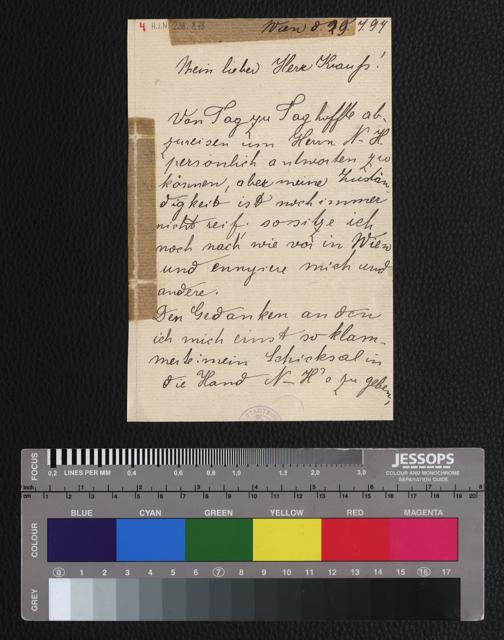 4 H.I.N. 
Wien d. 29. 7. 97
Mein lieber Herr Krauß!
Von Tag zu Tag hoffte ab-
zureisen um Herrn N-H.
persönlich antworten zu
können, aber meine Zustän-
digkeit ist noch immer
nicht reif. so sitze ich
noch nach wie vor in Wien
und ennyiere mich und
andere.
Den Gedanken an den
ich mich einst so klam-
merte: mein Schicksal in
die Hand N-H's zu geben,
JESSOPS
COLOUR AND MONOCHROME
SEPARATION GUIDE
FOCUS
0,2 LINES PER MM 0,4 0,6 0,8 1,0 1,5 2,0 3,0
inch 1 2 3 4 5 6 7 8
cm 1 2 3 4 5 6 7 8 9 10 11 12 13 14 15 16 17 18 19 20
COLOUR
BLUE CYAN GREEN YELLOW RED MAGENTA
0 1 2 3 4 5 6 7 8 9 10 11 12 13 14 15 16 17
GREY